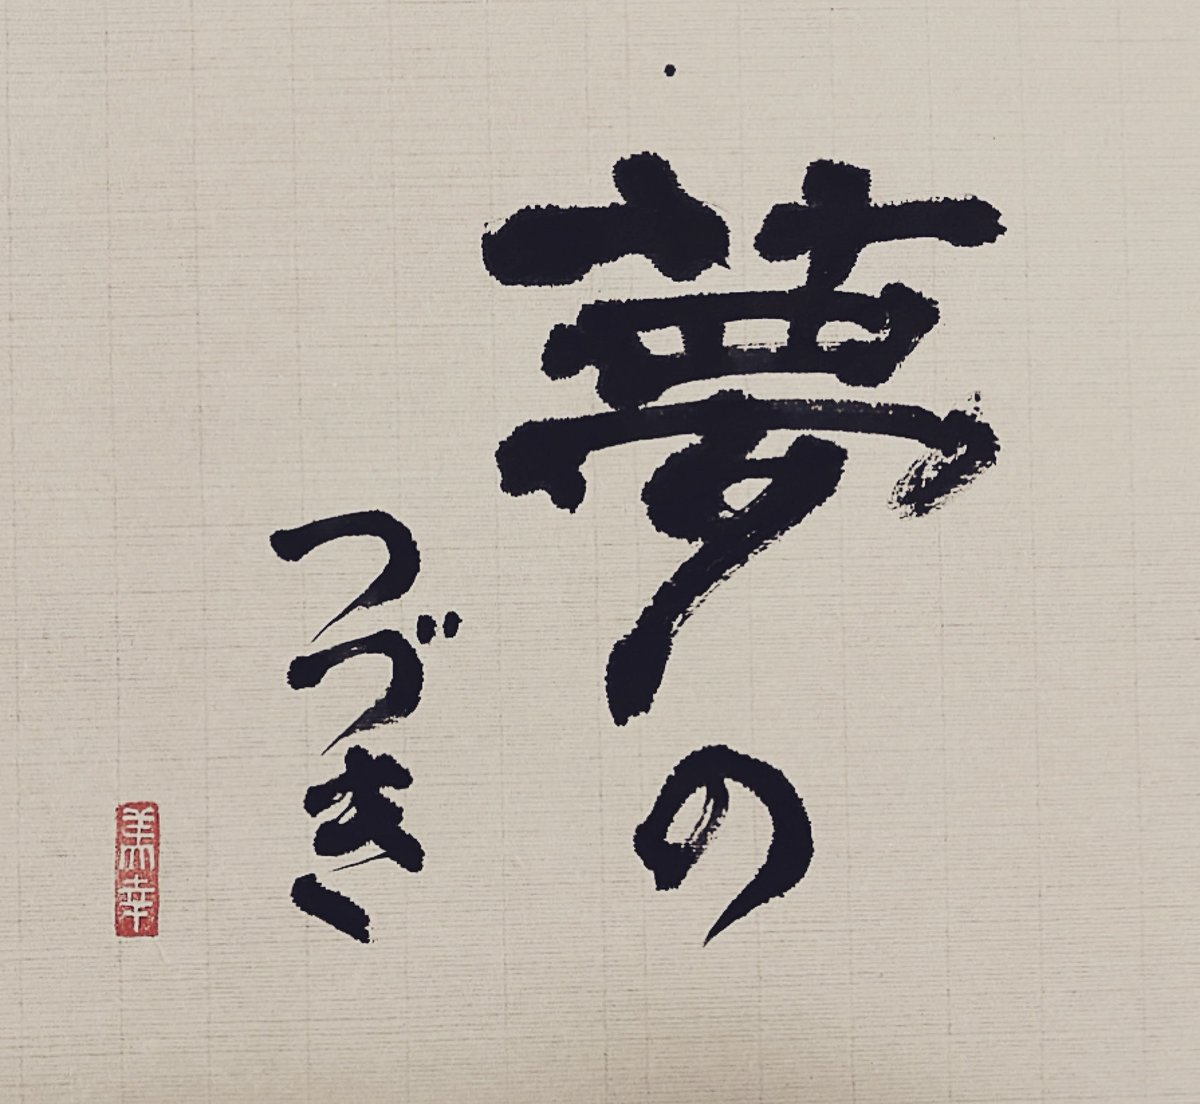 夢の
つづき
美幸